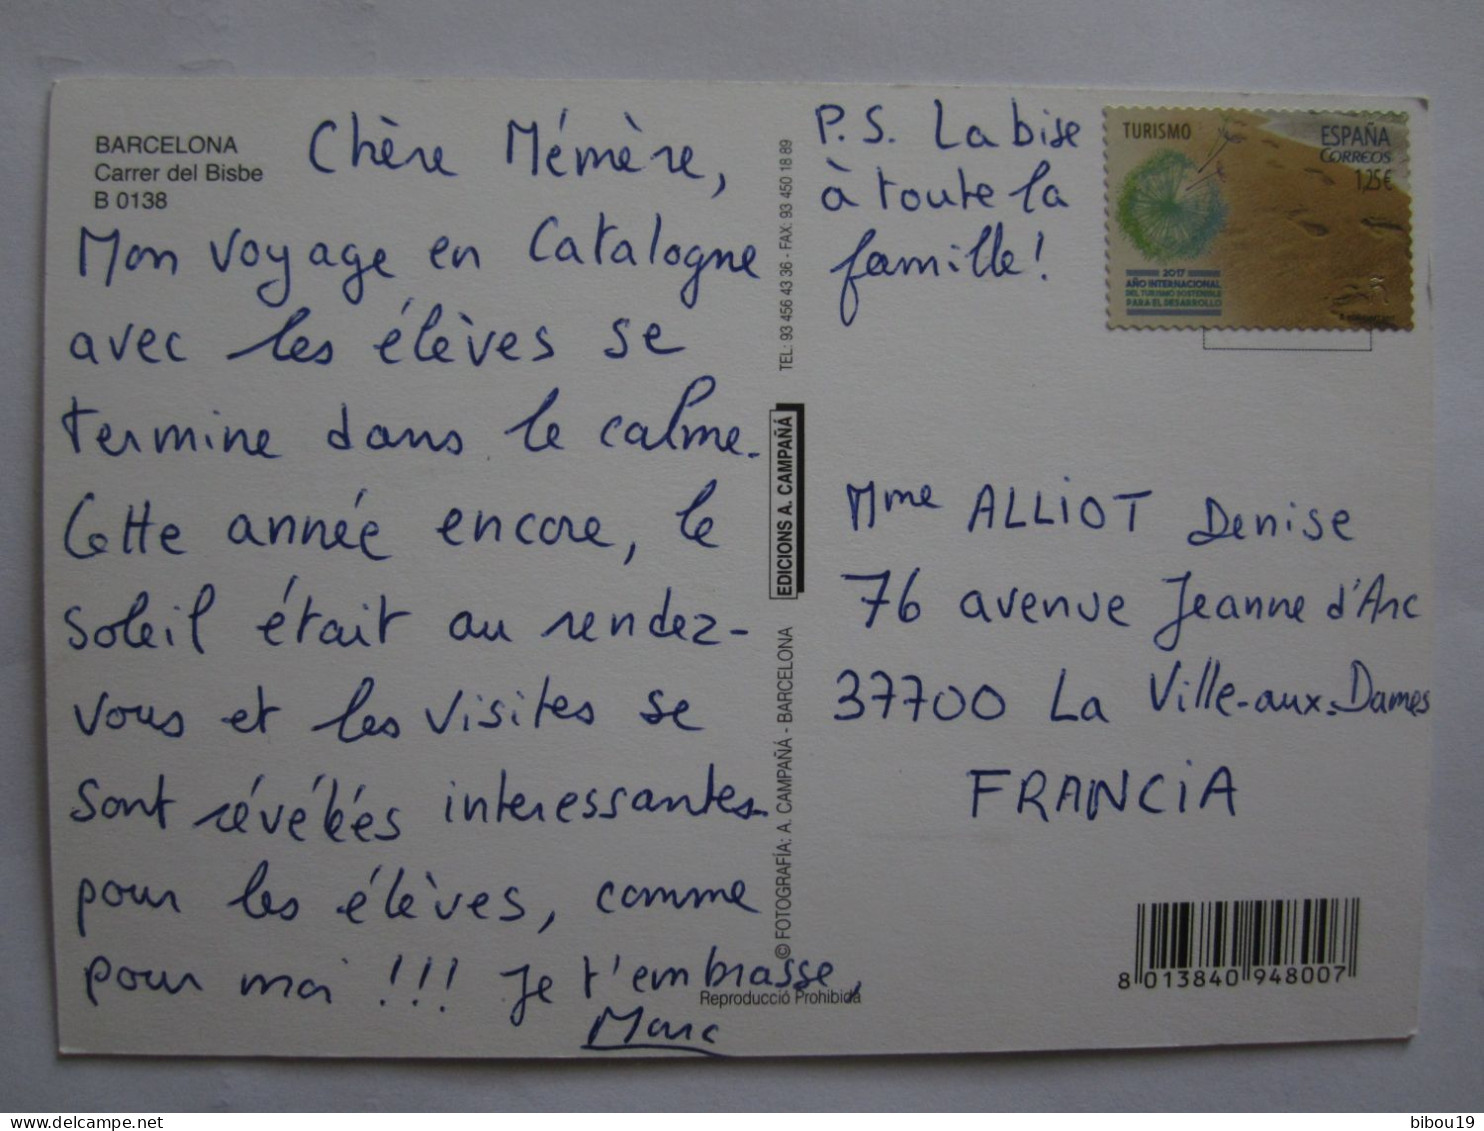 BARCELONA
Carrer del Bisbe
B 0138
Chère Mémère,
Mon voyage en Catalogne
avec les élèves se
termine dans le calme.
Cette année encore, le
soleil était au rendez-
vous et les visites se
sont révélées interessantes
pour les élèves, comme
pour moi !!! Je t'embrasse,
Marc
P.S. La bise
à toute la
famille!
TURISMO
ESPAÑA
CORREOS
1,25€
2017
AÑO INTERNACIONAL
DEL TURISMO SOSTENIBLE
PARA EL DESARROLLO
Mme ALLIOT Denise
76 avenue Jeanne d'Arc
37700 La Ville-aux-Dames
FRANCIA
TEL: 93 456 43 36 - FAX: 93 450 18 89
EDICIONS A. CAMPAÑÁ
© FOTOGRAFÍA: A. CAMPAÑÁ - BARCELONA
Reproducció Prohibida
8 013840 948007
delcampe.net
bibou19